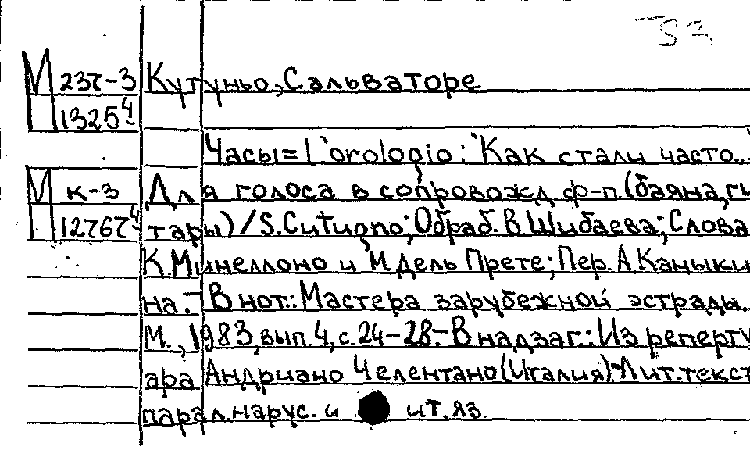 М 237-3 Кутуньо, Сальваторе
13254
Часы = L'orologio: "Как стали часто..."
М к-3 Для голоса в сопровожд. ф-п. (баяна, ги
12767 тары) / S. Cutugno; Обраб. В. Шибаева; Слова
К. Минеллоно и М. Дель Прете; Пер. А. Каныки
на. – В нот.: Мастера зарубежной эстрады.
М., 1983, вып. 4, с. 24-28. – В надзаг.: Из реперту
ара Андриано Челентано (Италия) – Лит. текст
парал. на рус. и ит. яз.